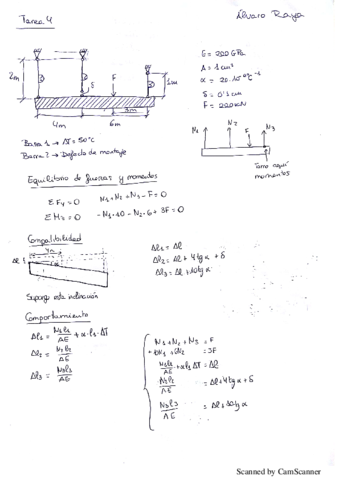 Tarea 4
Álvaro Raya
E = 200 GPa
A = 1 cm²
α = 20·10⁻⁶ ºC⁻¹
δ = 0'1 cm
F = 200 kN
2m
1m
δ
F
3m
4m
6m
N1
N2
F
N3
Barra 1 → ΔT = 50ºC
Barra 2 → Defecto de montaje
Tomo aquí
momentos
Equilibrio de fuerzas y momentos
ΣFy = 0 N1 + N2 + N3 - F = 0
ΣM3 = 0 - N1·10 - N2·6 + 3F = 0
Compatibilidad
4m
Δl
α
Δl1 = Δl
Δl2 = Δl + 4 tg α + δ
Δl3 = Δl + 10 tg α
Supongo esta inclinación
Comportamiento
Δl1 = N1l1/AE + α·l1·ΔT
Δl2 = N2l2/AE
Δl3 = N3l3/AE
N1 + N2 + N3 = F
10N1 + 6N2 = 3F
N1l1/AE + αl1ΔT = Δl
N2l2/AE = Δl + 4 tg α + δ
N3l3/AE = Δl + 10 tg α
Scanned by CamScanner